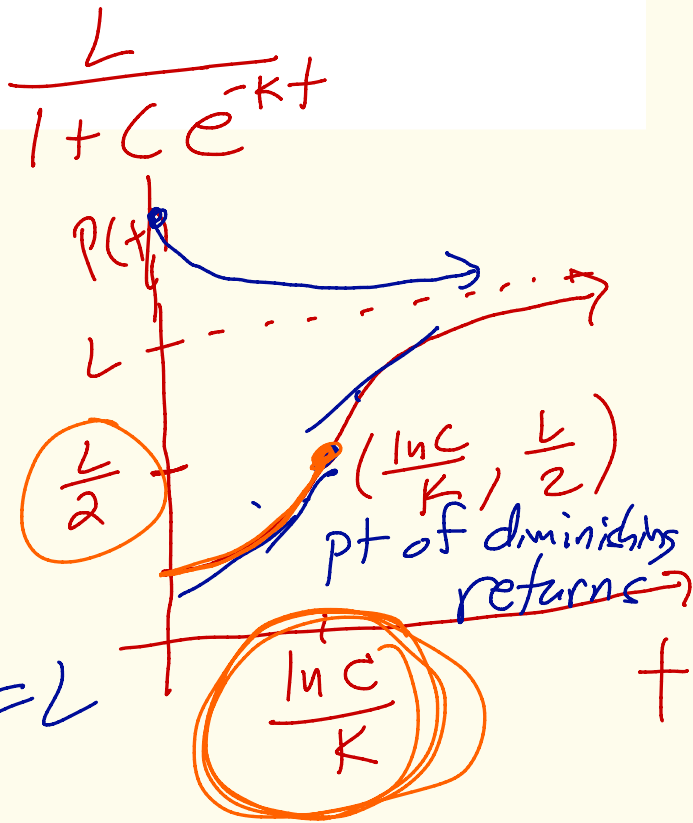 L
1 + C e^-kt
P(t)
L
L/2
(ln C/K, L/2)
pt of diminishing
returns
= L
ln C/K
t